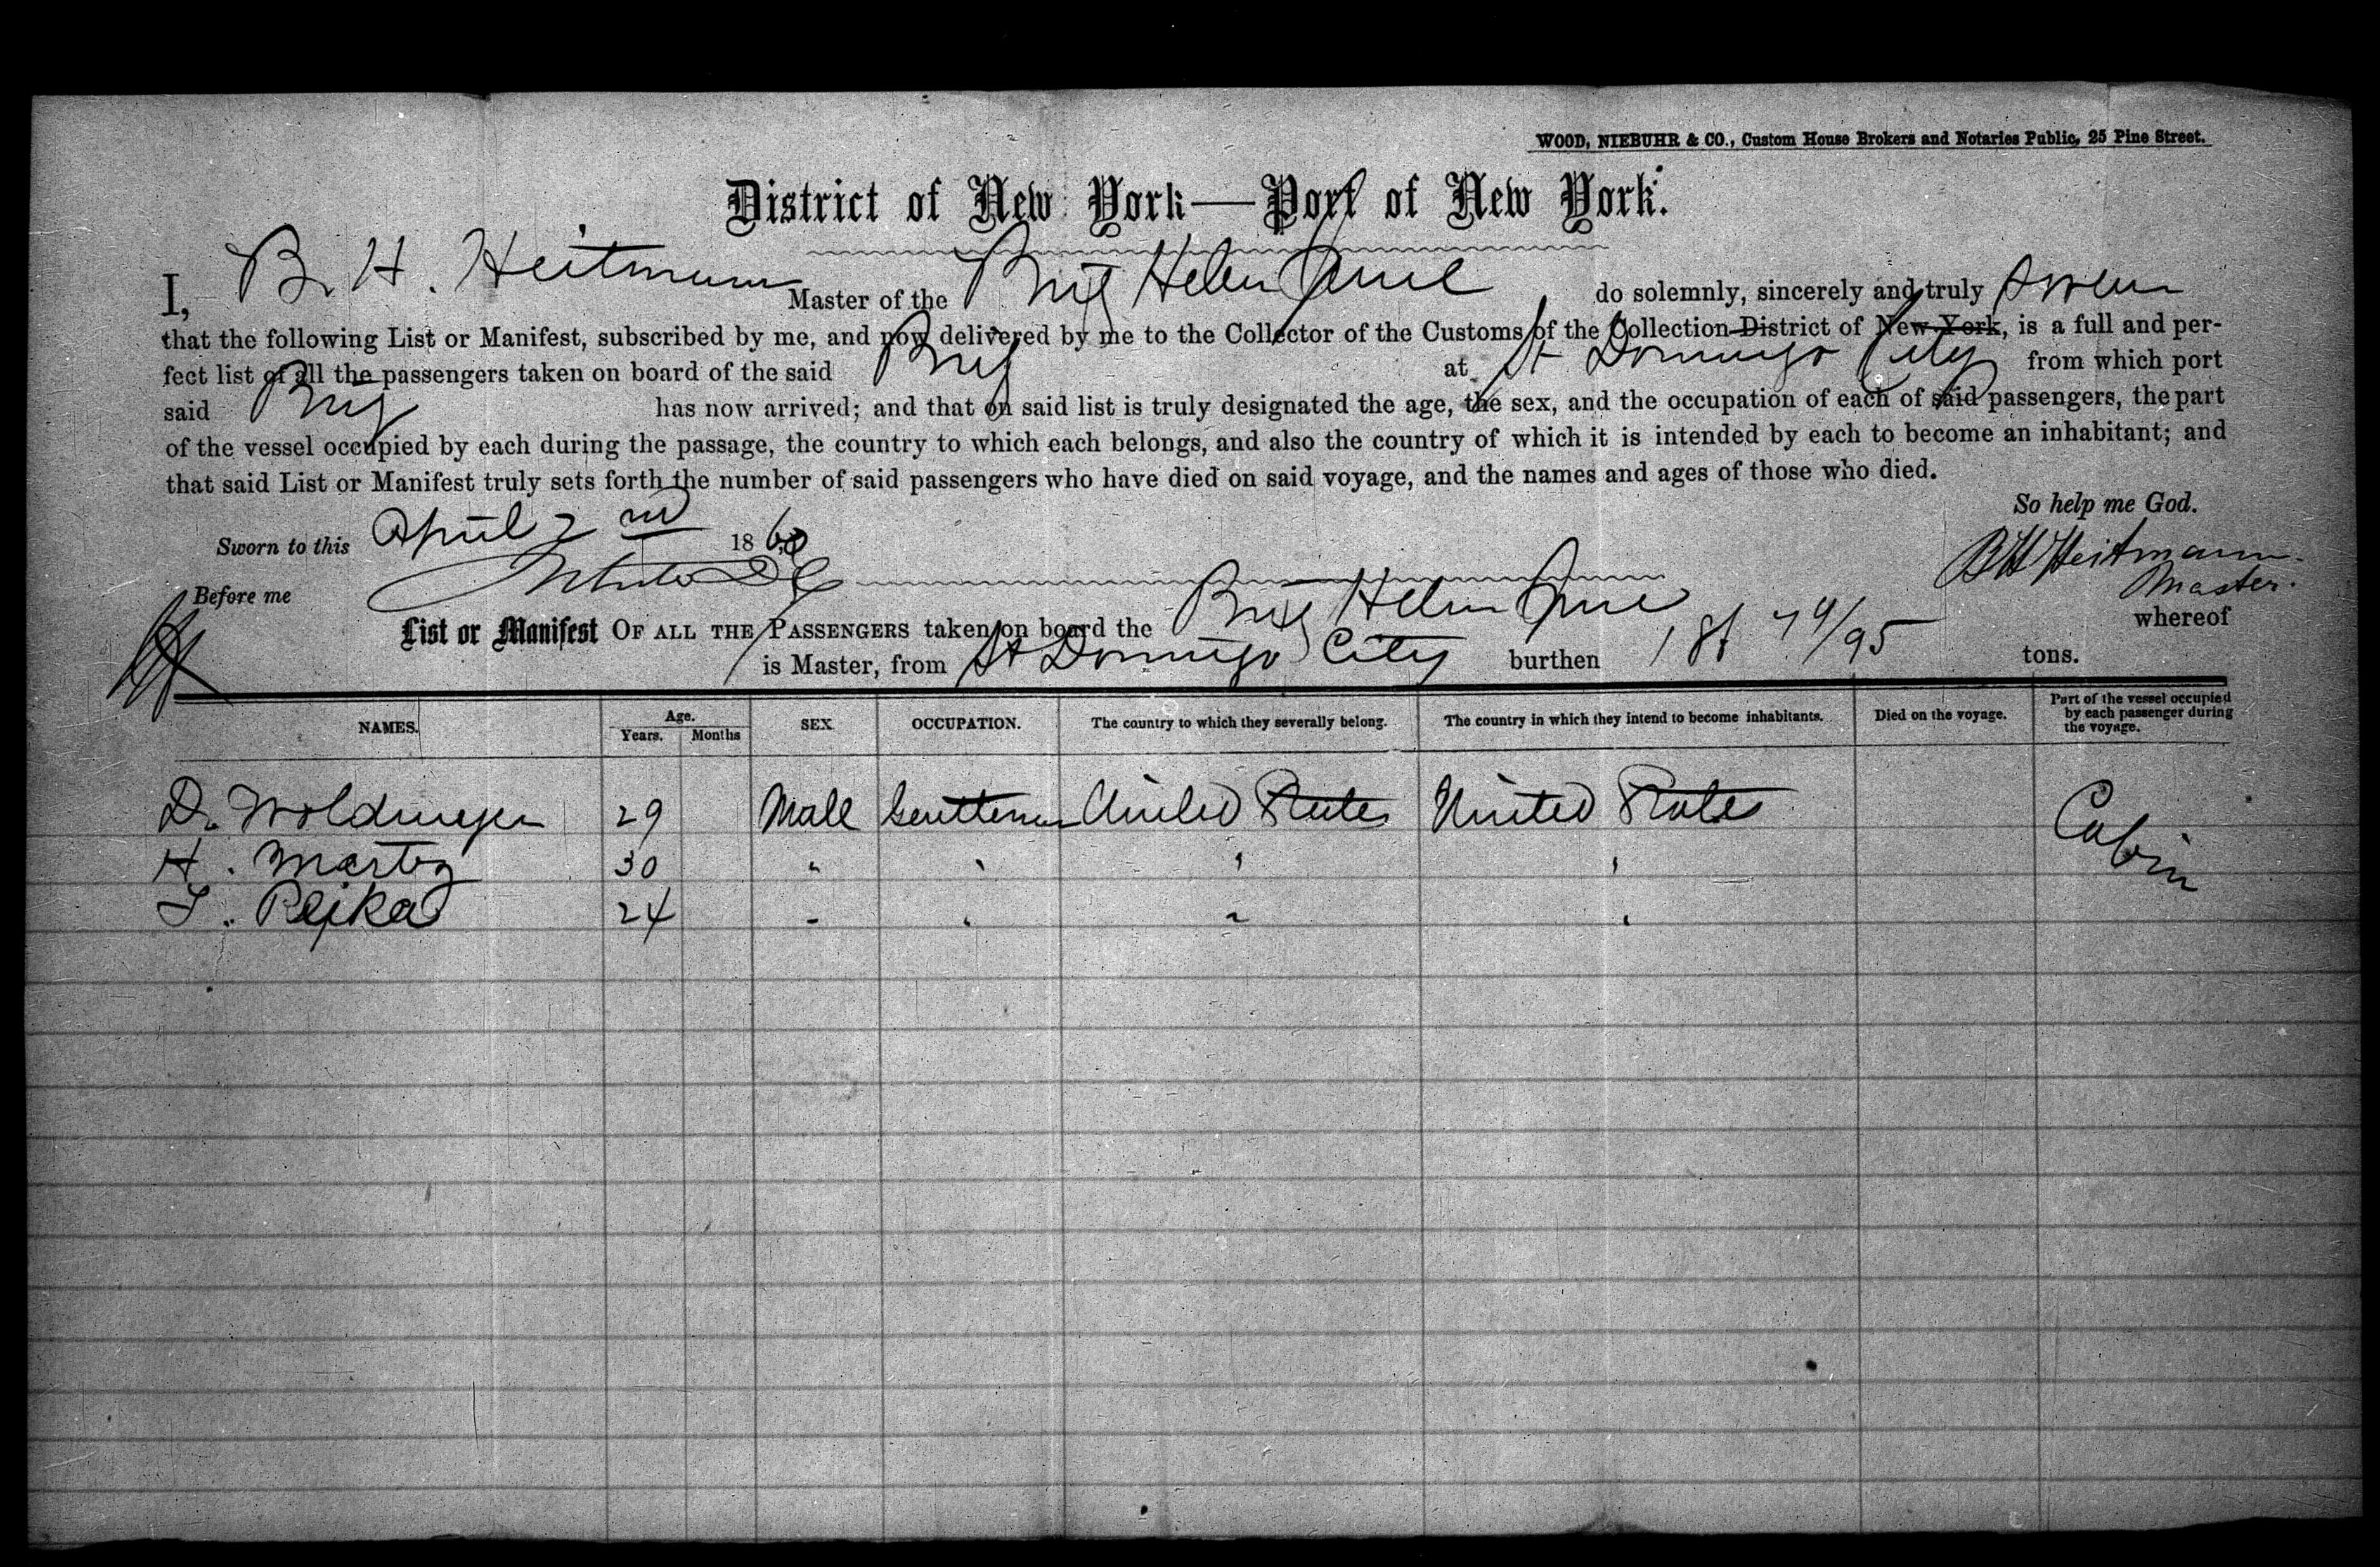 WOOD, NIEBUHR & CO., Custom House Brokers and Notaries Public, 25 Pine Street.
District of New York—Port of New York.
I, B. H. Heitmann Master of the Brig Helen Jane do solemnly, sincerely and truly swear
that the following List or Manifest, subscribed by me, and now delivered by me to the Collector of the Customs of the Collection District of New York, is a full and per-
fect list of all the passengers taken on board of the said Brig at St Domingo City from which port
said Brig has now arrived; and that on said list is truly designated the age, the sex, and the occupation of each of said passengers, the part
of the vessel occupied by each during the passage, the country to which each belongs, and also the country of which it is intended by each to become an inhabitant; and
that said List or Manifest truly sets forth the number of said passengers who have died on said voyage, and the names and ages of those who died.
So help me God.
Sworn to this April 2nd 1860
BH Heitmann
Before me
Master.
List or Manifest OF ALL THE PASSENGERS taken on board the Brig Helen Jane whereof
is Master, from St Domingo City burthen tons.
NAMES. Age. Years. Months SEX. OCCUPATION. The country to which they severally belong. The country in which they intend to become inhabitants. Died on the voyage. Part of the vessel occupied by each passenger during the voyage.
D. Woldmeyer 29 Male Gentleman United States United States Cabin
H. Martz 30 " " " "
24 " " " "